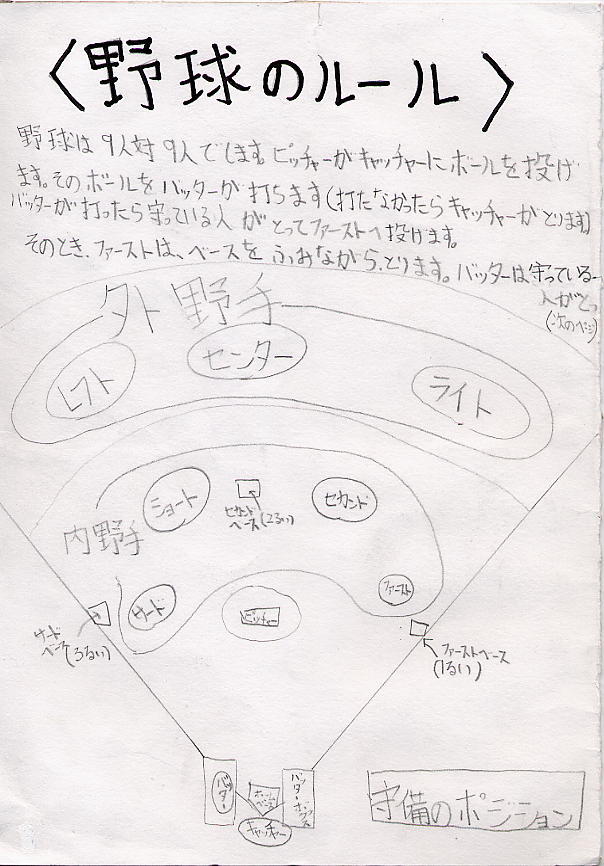 〈野球のルール〉
野球は9人対9人でします。ピッチャーがキャッチャーにボールを投げ
ます。そのボールをバッターが打ちます(打たなかったらキャッチャーがとります)
バッターが打ったら守っている人がとってファーストへ投げます。
そのとき、ファーストは、ベースをふみながら、とります。バッターは守っている
人がとっ
(次のページ)
外野手
レフト
センター
ライト
ショート
セカンドベース(2るい)
セカンド
内野手
サード
ピッチャー
ファースト
サードベース(3るい)
ファーストベース
(1るい)
バッター
ホームベース
バッターボックス
キャッチャー
守備のポジション